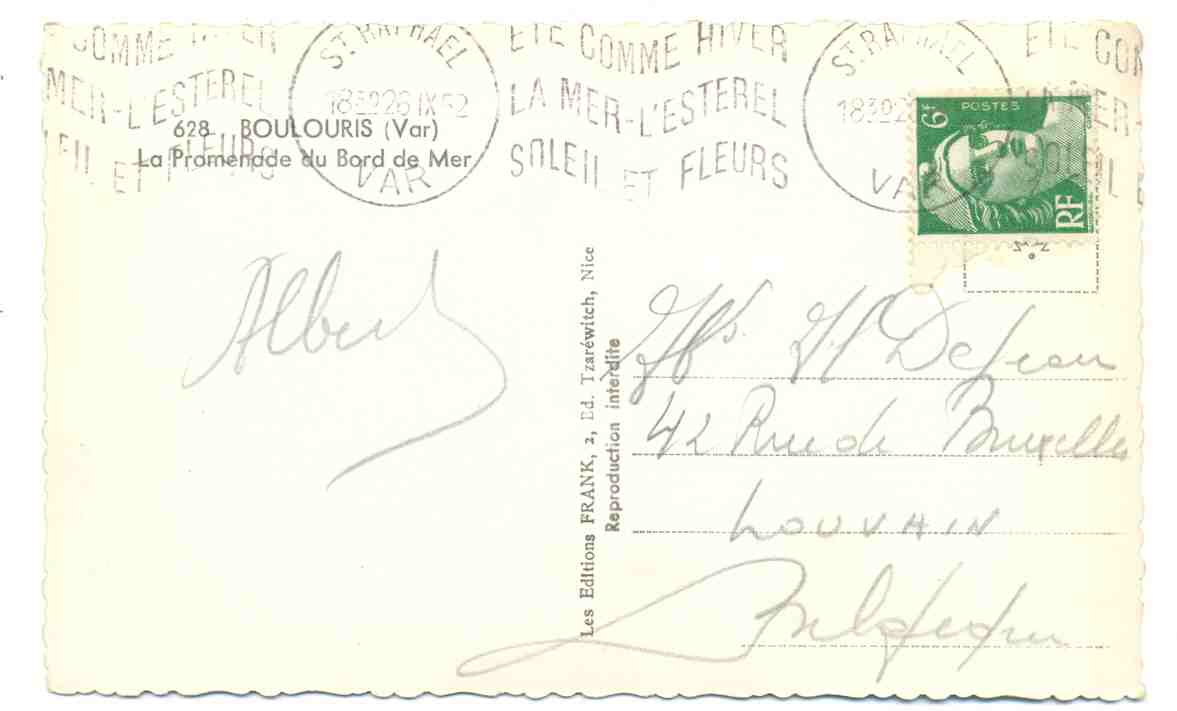 ÉTÉ COMME HIVER
LA MER-L'ESTEREL
SOLEIL ET FLEURS
ST. RAPHAEL
VAR
ÉTÉ COMME HIVER
LA MER-L'ESTEREL
SOLEIL ET FLEURS
ST. RAPHAEL
VAR
628 BOULOURIS (Var)
La Promenade du Bord de Mer
POSTES
6F
RF
Albert
Les Editions FRANK, 2, Bd. Tzaréwitch, Nice
Reproduction interdite
Dejean
42 Rue de Bruxelles
LOUVAIN
Belgique